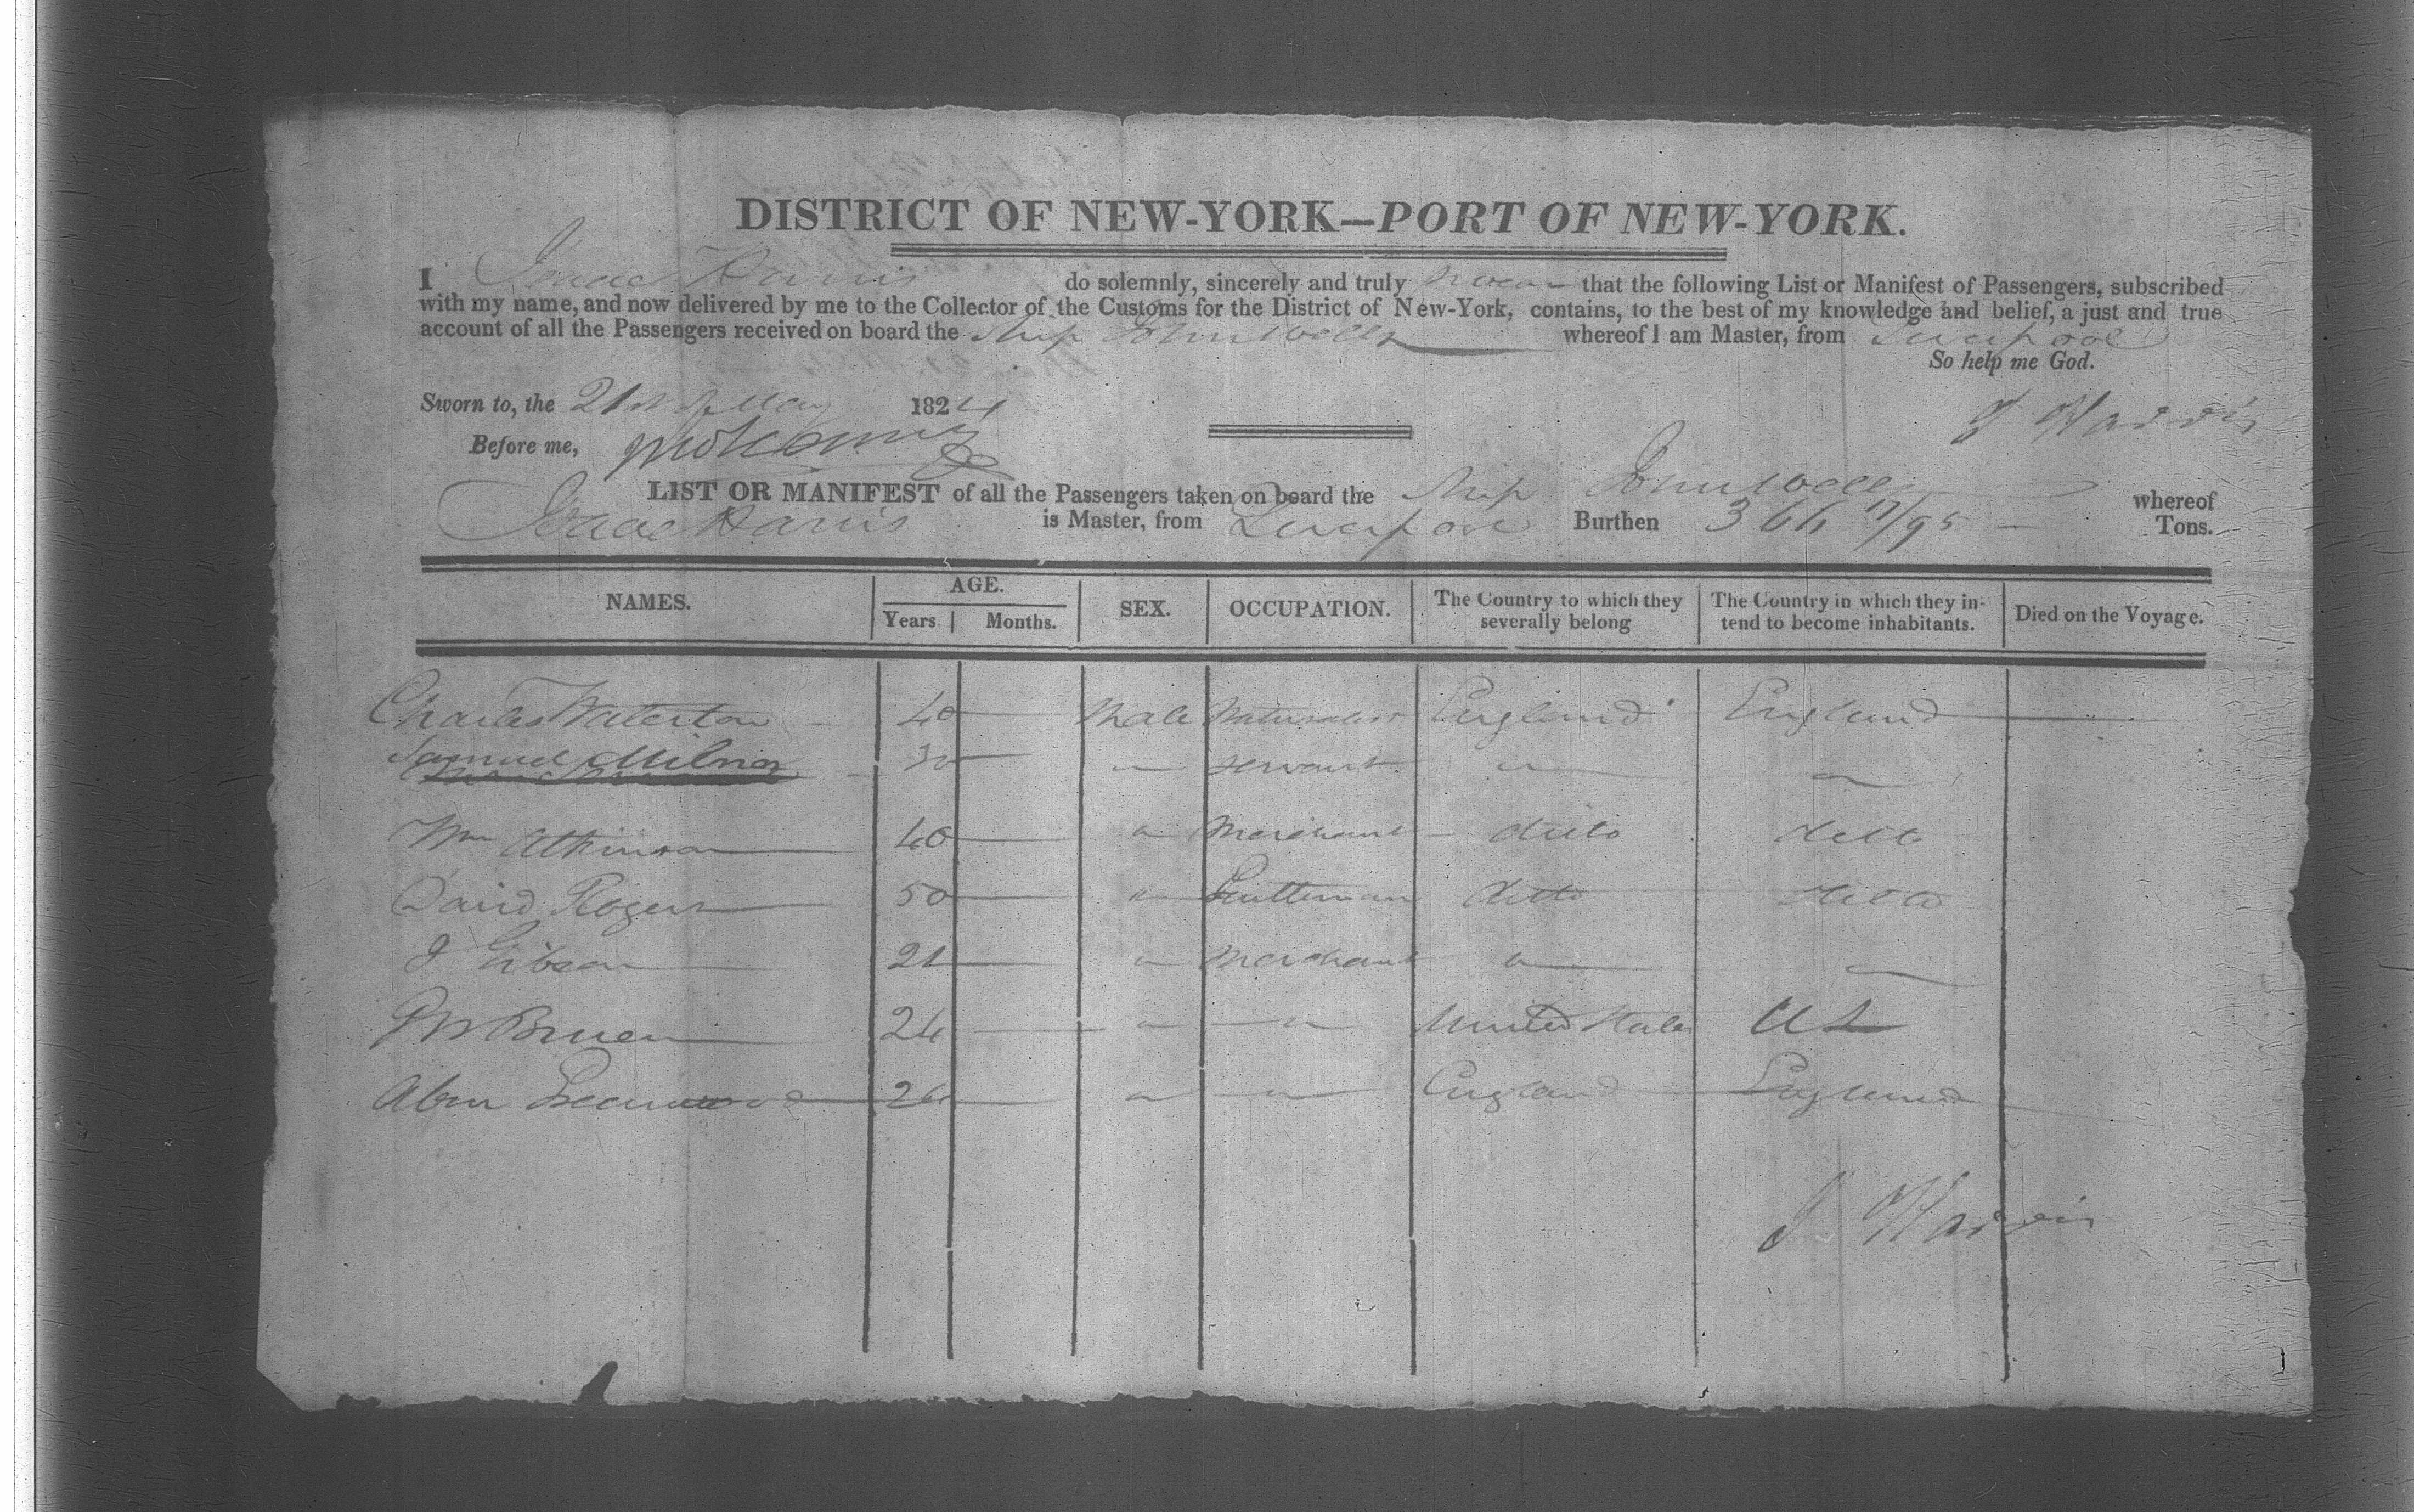 DISTRICT OF NEW-YORK—PORT OF NEW-YORK.
I Isaac Harris do solemnly, sincerely and truly swear that the following List or Manifest of Passengers, subscribed
with my name, and now delivered by me to the Collector of the Customs for the District of New-York, contains, to the best of my knowledge and belief, a just and true
account of all the Passengers received on board the Ship John Wells whereof I am Master, from Liverpool
So help me God.
Sworn to, the 21st of May 1824
J Harris
Before me,
LIST OR MANIFEST of all the Passengers taken on board the Ship John Wells whereof
Isaac Harris is Master, from Liverpool Burthen 366 11/95 Tons.
NAMES. AGE. SEX. OCCUPATION. The Country to which they severally belong The Country in which they intend to become inhabitants. Died on the Voyage.
Years Months.
Charles Waterton 40 Male Naturalist England England
Samuel Milner 30 " servant " "
Wm Atkinson 40 " Merchant ditto ditto
David Rogers 50 " Gentleman ditto ditto
J Gibson 21 " Merchant " "
Bruen 24 " " United States US
Abm 26 " " England England
J Harris